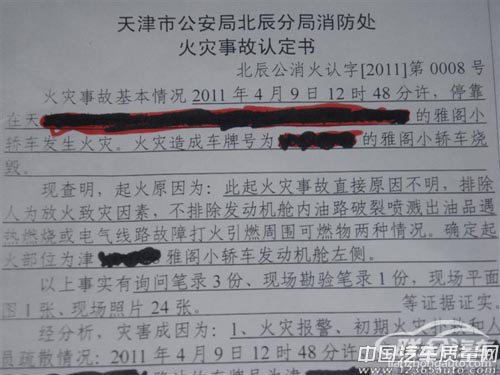 天津市公安局北辰分局消防处
火灾事故认定书
北辰公消火认字[2011]第 0008 号
火灾事故基本情况 2011 年 4 月 9 日 12 时 48 分许，停靠
在天 的雅阁小
轿车发生火灾。火灾造成车牌号为 的雅阁小轿车烧
毁。
现查明，起火原因为：此起火灾事故直接原因不明，排除
人为放火致灾因素，不排除发动机舱内油路破裂喷溅出油品遇
热燃烧或电气线路故障打火引燃周围可燃物两种情况。确定起
火部位为津 雅阁小轿车发动机舱左侧。
以上事实有询问笔录 3 份、现场勘验笔录 1 份，现场平面
图 1 张、现场照片 24 张。 等证据证实。
经分析，灾害成因为：1、火灾报警、初期火灾
员疏散情况：2011 年 4 月 9 日 12 时 48 分许
中国汽车质量网
www.12365auto.com